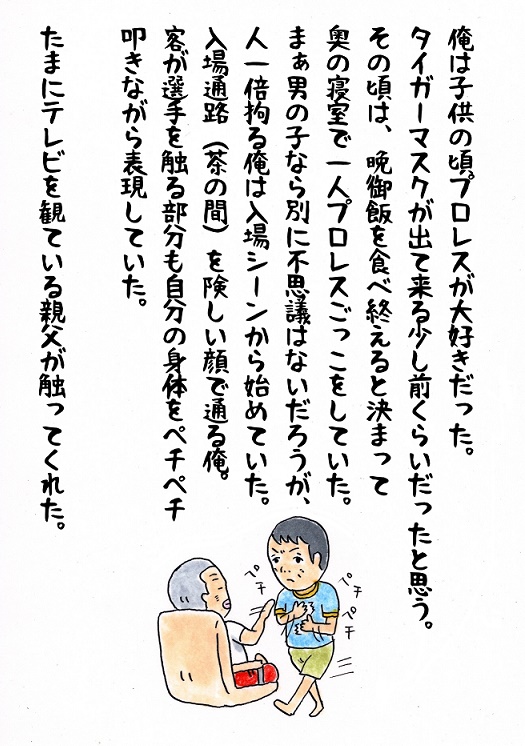 俺は子供の頃、プロレスが大好きだった。
タイガーマスクが出て来る少し前くらいだったと思う。
その頃は、晩御飯を食べ終えると決まって
奥の寝室で一人プロレスごっこをしていた。
まぁ男の子なら別に不思議はないだろうが、
人一倍拘る俺は入場シーンから始めていた。
入場通路（茶の間）を険しい顔で通る俺。
客が選手を触る部分も自分の身体をペチペチ
叩きながら表現していた。
たまにテレビを観ている親父が触ってくれた。
ペチ
ペチ
ペチ